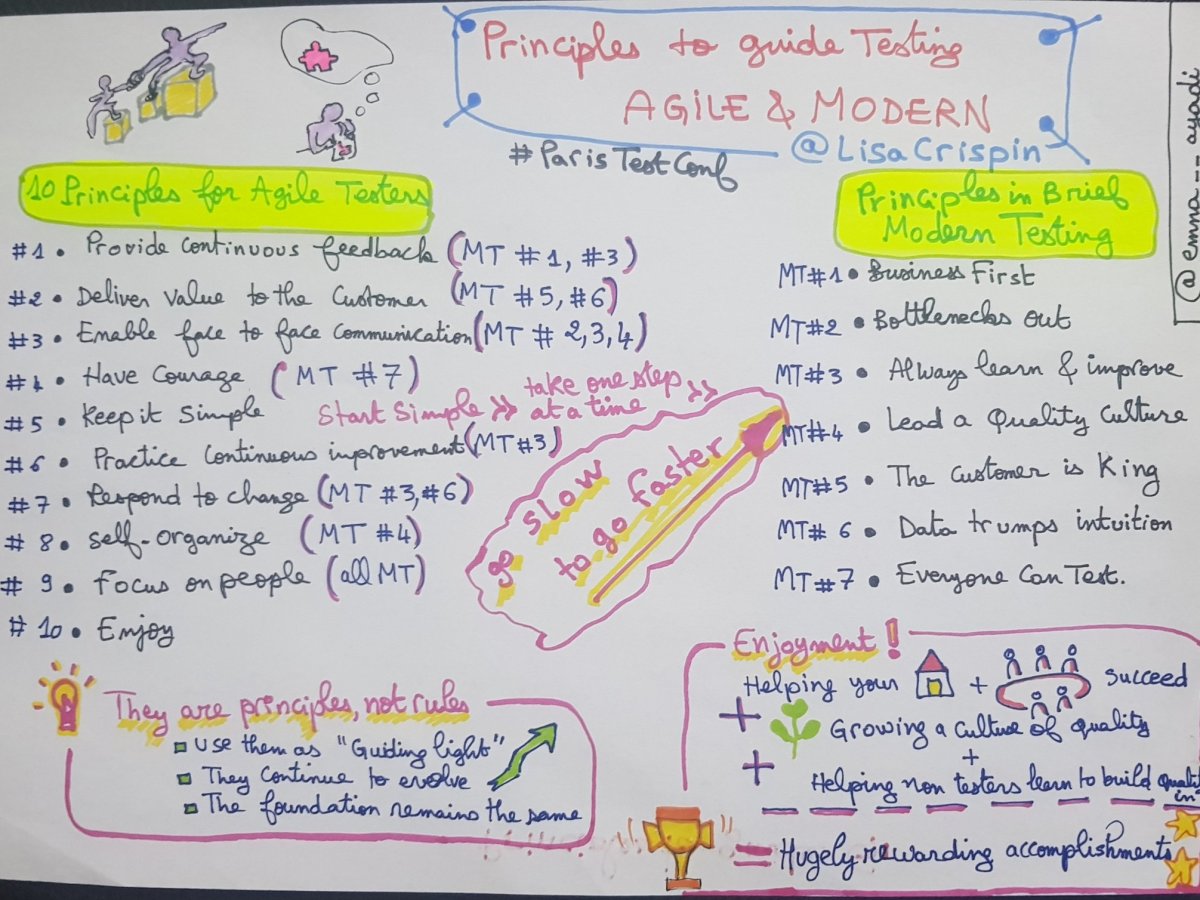 Principles to guide Testing
AGILE & MODERN
@LisaCrispin
#ParisTestConf
@emna___ayadi
10 Principles for Agile Testers
#1 • Provide continuous feedback (MT #1, #3)
#2 • Deliver value to the Customer (MT #5, #6)
#3 • Enable face to face communication (MT # 2,3,4)
#4 • Have Courage (MT #7)
#5 • Keep it Simple Start Simple >> take one step at a time >>
#6 • Practice Continuous improvement (MT#3)
#7 • Respond to change (MT #3,#6)
#8 • self-organize (MT #4)
#9 • Focus on people (all MT)
#10 • Enjoy
go slow
to go faster
Principles in Brief
Modern Testing
MT#1 • Business First
MT#2 • Bottlenecks out
MT#3 • Always learn & improve
MT#4 • Lead a Quality Culture
MT#5 • The Customer is King
MT#6 • Data trumps intuition
MT#7 • Everyone Can Test.
They are principles, not rules
Use them as "Guiding light"
They continue to evolve
The foundation remains the same
Enjoyment!
Helping your + succeed
+ Growing a culture of quality
+
+ Helping non testers learn to build quality
in
= Hugely rewarding accomplishments